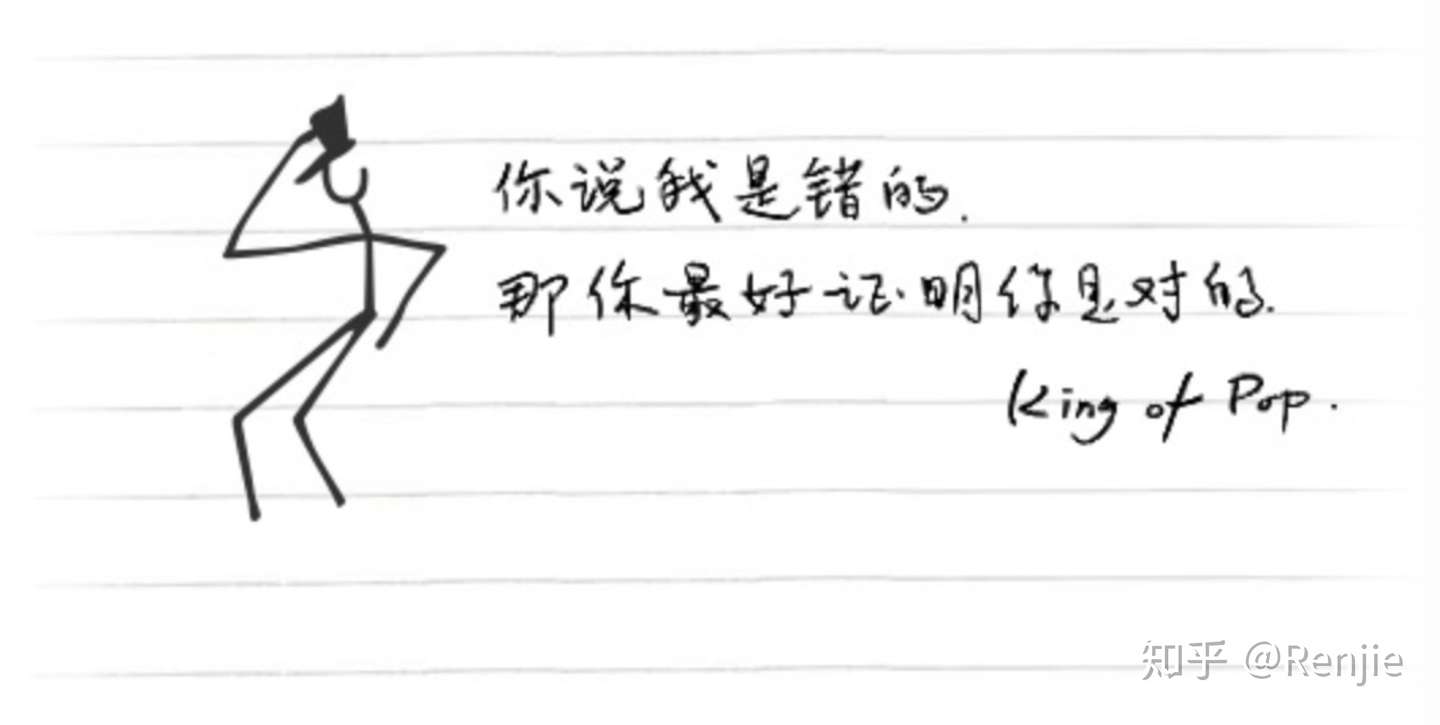 你说我是错的.
那你最好证明你是对的.
King of Pop.
知乎 @Renjie